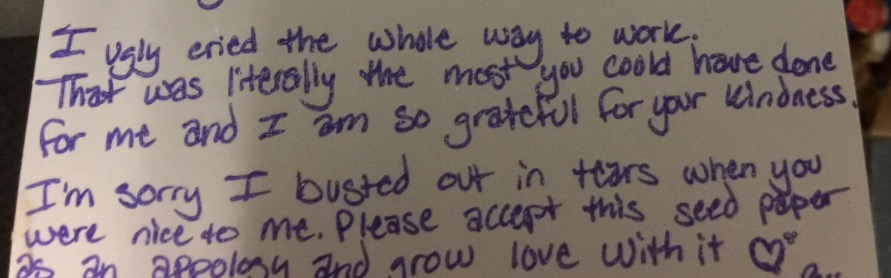 I ugly cried the whole way to work.
That was literally the most you could have done
for me and I am so grateful for your kindness.
I'm sorry I busted out in tears when you
were nice to me. Please accept this seed paper
as an appology and grow love with it ♡